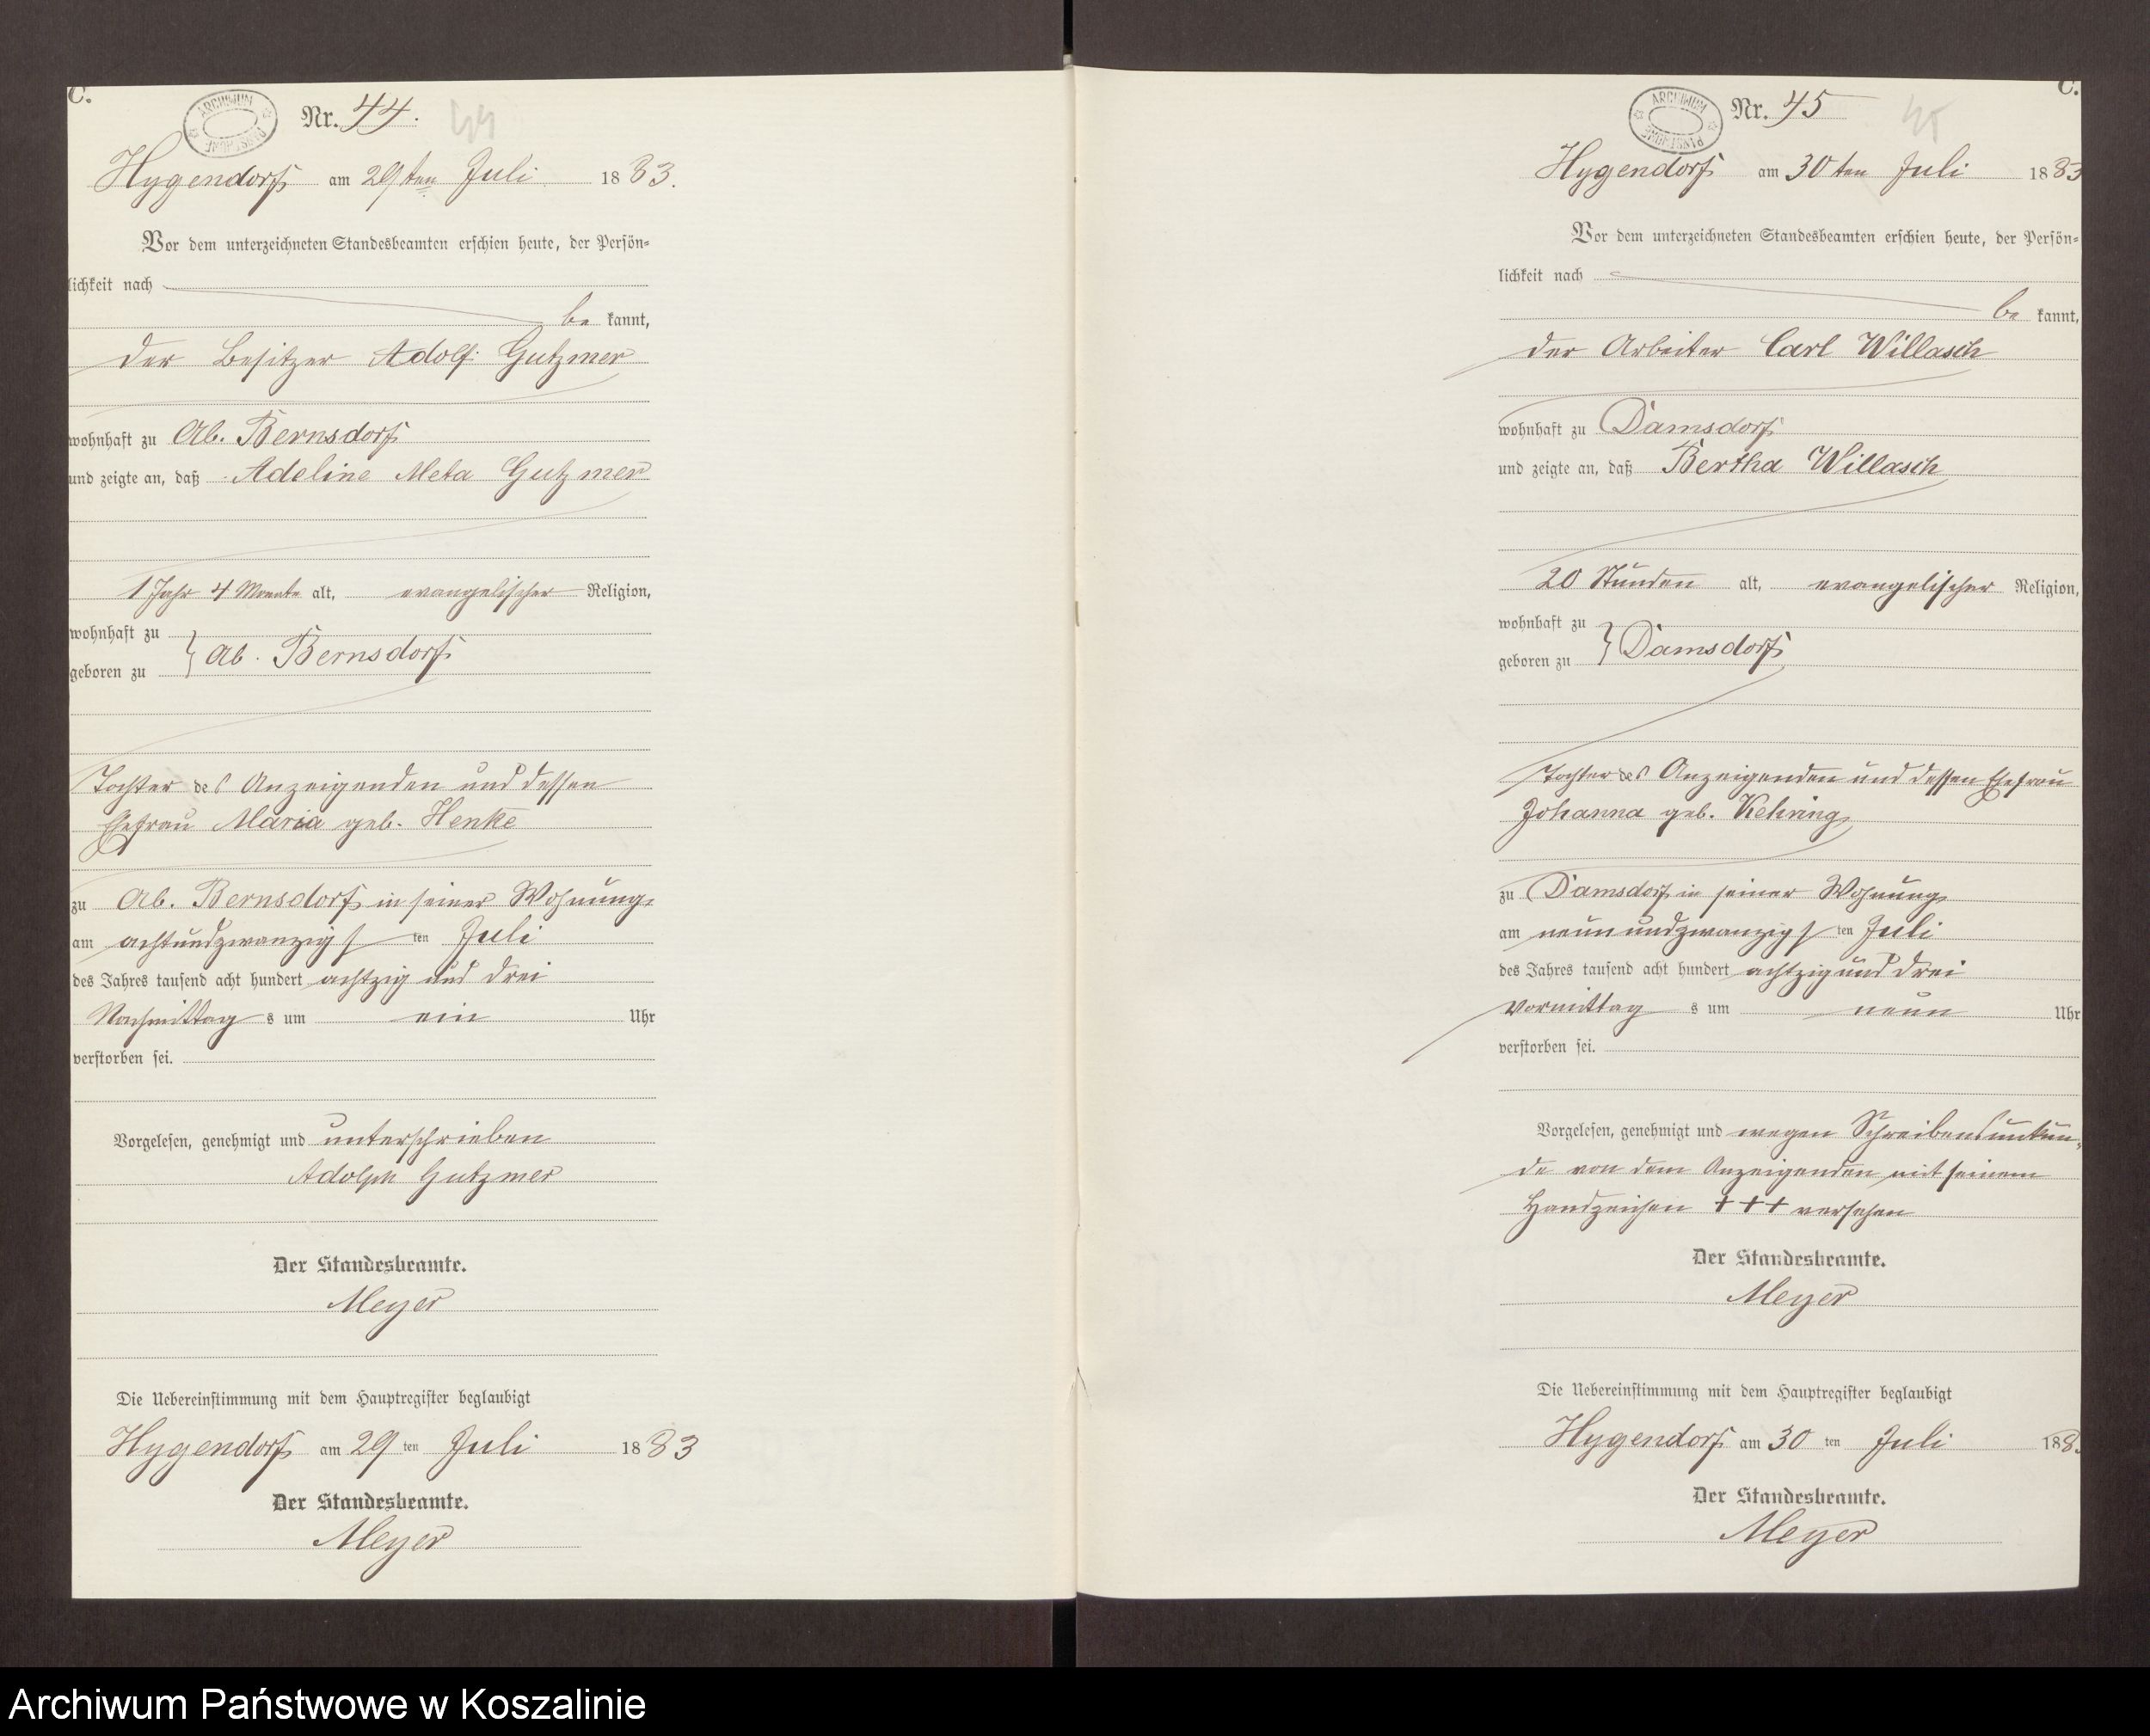 C.
ARCHIWUM PAŃSTWOWE
Nr. 44.
44
Hygendorf am 29ten Juli 1883.
Vor dem unterzeichneten Standesbeamten erschien heute, der Persön-
lichkeit nach
be kannt,
der Besitzer Adolf Gutzmer
wohnhaft zu Ab. Bernsdorf
und zeigte an, daß Adeline Meta Gutzmer
1 Jahr 4 Monate alt, evangelischer Religion,
wohnhaft zu
geboren zu } Ab. Bernsdorf
Tochter des Anzeigenden und dessen
Ehefrau Maria geb. Henke
zu Ab. Bernsdorf in seiner Wohnung
am achtundzwanzigs ten Juli
des Jahres tausend acht hundert achtzig und drei
Nachmittag s um ein Uhr
verstorben sei.
Vorgelesen, genehmigt und unterschrieben
Adolph Gutzmer
Der Standesbeamte.
Meyer
Die Uebereinstimmung mit dem Hauptregister beglaubigt
Hygendorf am 29 ten Juli 1883
Der Standesbeamte.
Meyer
C.
ARCHIWUM PAŃSTWOWE
Nr. 45
45
Hygendorf am 30ten Juli 1883
Vor dem unterzeichneten Standesbeamten erschien heute, der Persön-
lichkeit nach
be kannt,
der Arbeiter Carl Willasch
wohnhaft zu Damsdorf
und zeigte an, daß Bertha Willasch
20 Stunden alt, evangelischer Religion,
wohnhaft zu
geboren zu } Damsdorf
Tochter des Anzeigenden und dessen Ehefrau
Johanna geb. Kehring
zu Damsdorf in seiner Wohnung
am neunundzwanzigs ten Juli
des Jahres tausend acht hundert achtzig und drei
Vormittag s um neun Uhr
verstorben sei.
Vorgelesen, genehmigt und wegen Schreibensunkun-
de von dem Anzeigenden mit seinem
Handzeichen +++ versehen
Der Standesbeamte.
Meyer
Die Uebereinstimmung mit dem Hauptregister beglaubigt
Hygendorf am 30 ten Juli 188
Der Standesbeamte.
Meyer
Archiwum Państwowe w Koszalinie